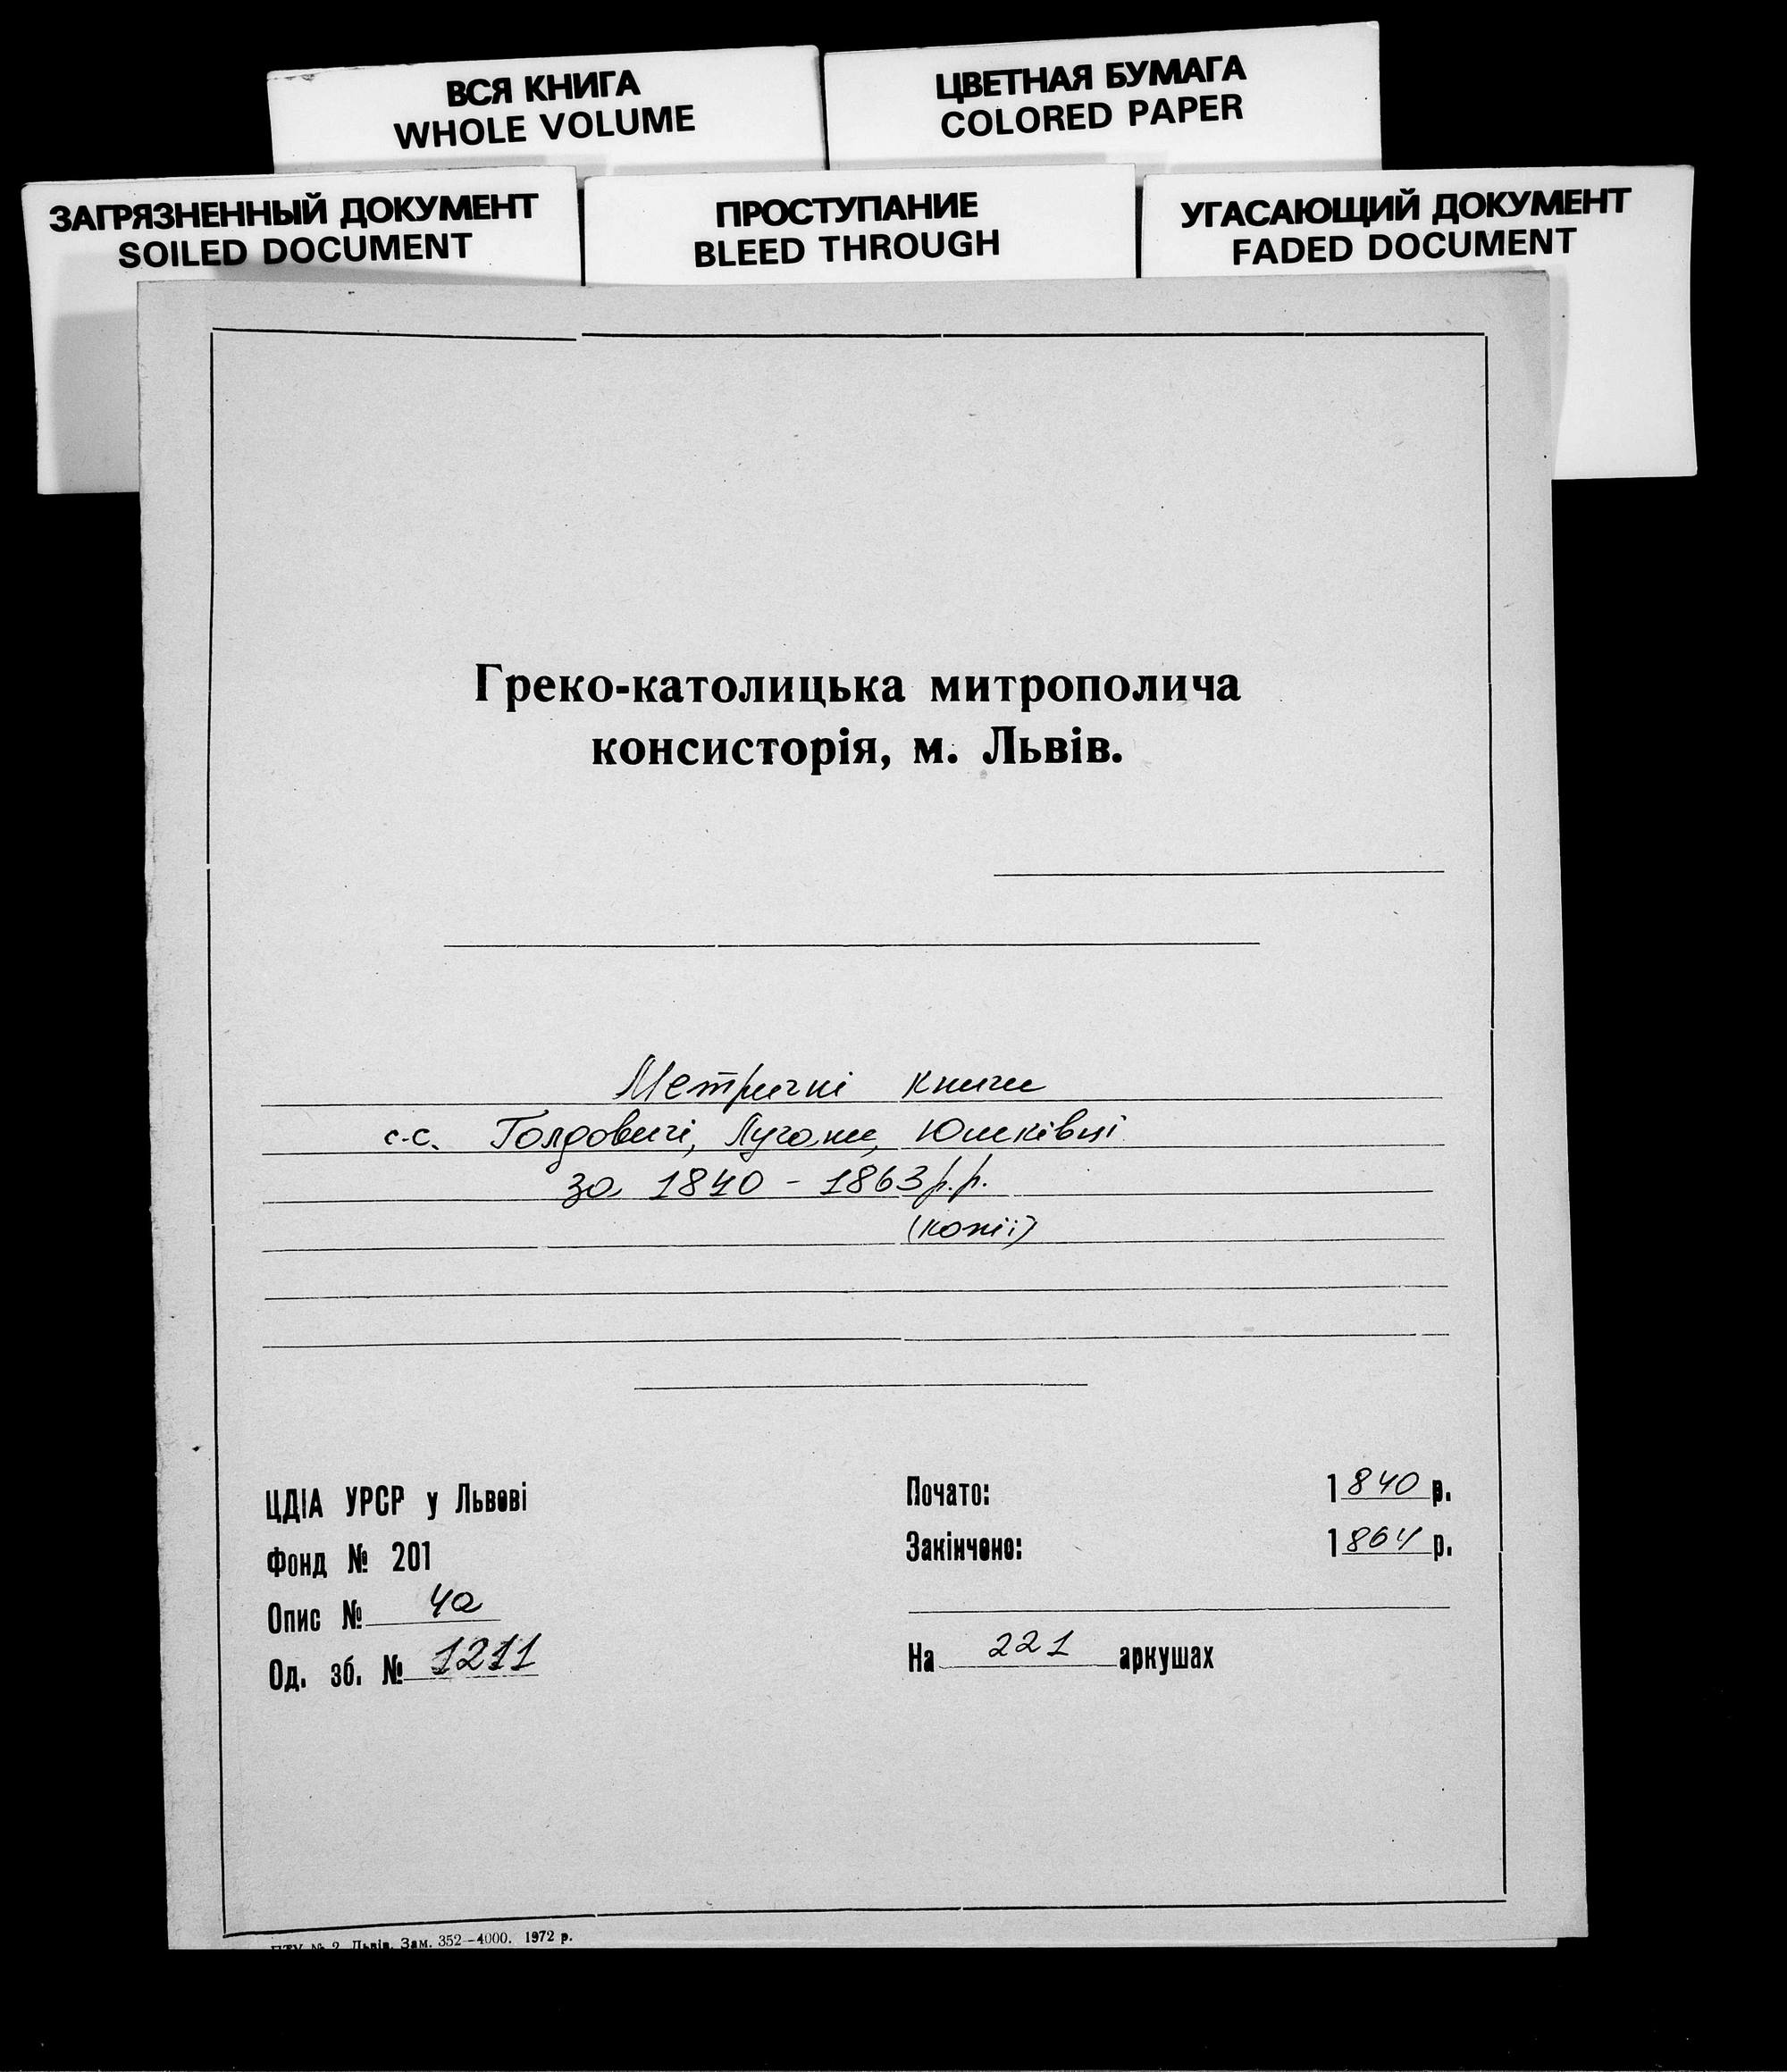 ВСЯ КНИГА
WHOLE VOLUME
ЦВЕТНАЯ БУМАГА
COLORED PAPER
ЗАГРЯЗНЕННЫЙ ДОКУМЕНТ
SOILED DOCUMENT
ПРОСТУПАНИЕ
BLEED THROUGH
УГАСАЮЩИЙ ДОКУМЕНТ
FADED DOCUMENT
Греко-католицька митрополича
консисторія, м. Львів.
Метричні книги
с.с. Голдовичі, Лучани, Юшківці
за 1840 - 1863 р.р.
(копії)
ЦДІА УРСР у Львові
Фонд № 201
Опис № 4а
Од. зб. № 1211
Почато: 1840 р.
Закінчено: 1864 р.
На 221 аркушах
ПТУ № 2 Львів. Зам. 352-4000. 1972 р.